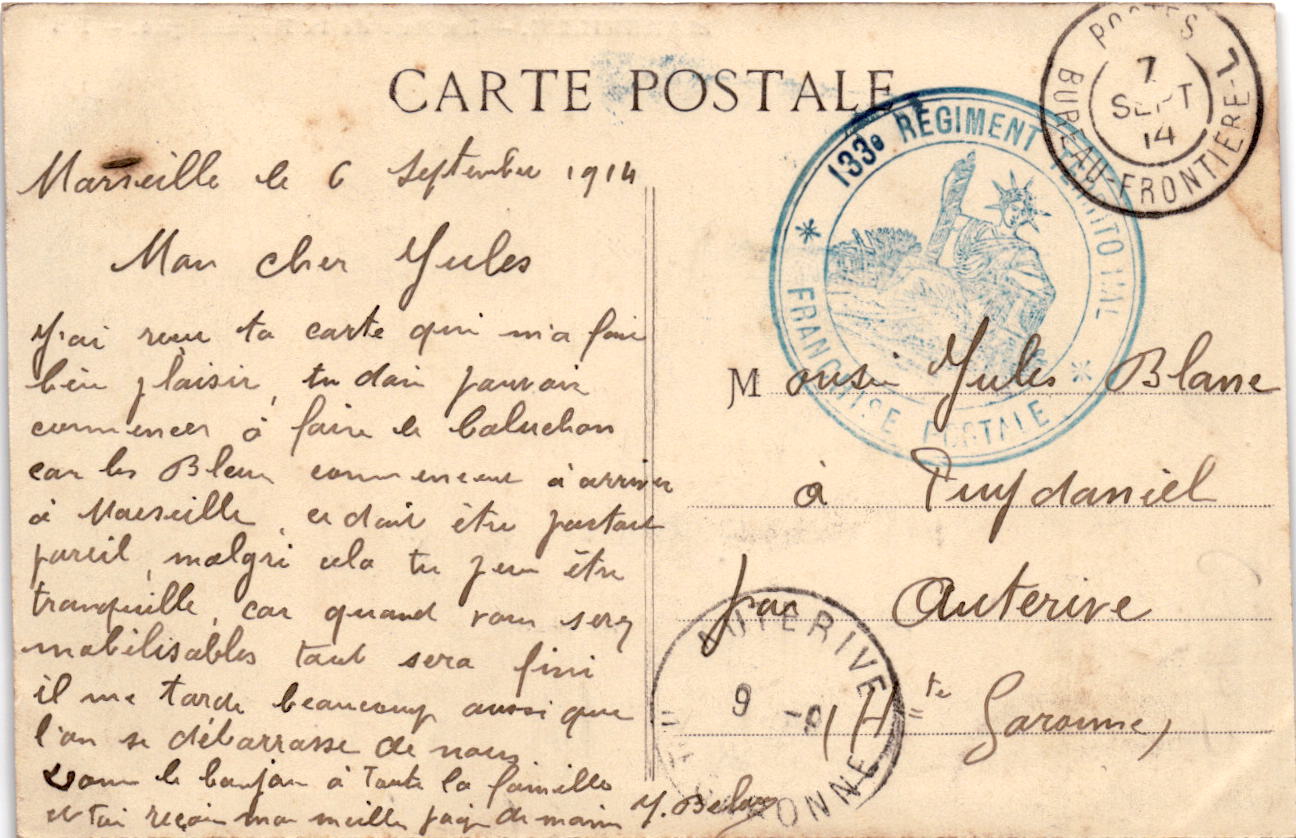 CARTE POSTALE
POSTES
7
SEPT
14
BUREAU-FRONTIERE-L
133e RÉGIMENT TERRITORIAL
FRANCHISE POSTALE
Marseille le 6 Septembre 1914
Mon cher Jules
J'ai reçu ta carte qui m'a fait
bien plaisir, tu dois pouvoir
commencer à faire le baluchon
car les Bleus commencent à arriver
à Marseille, ce doit être partout
pareil, malgré cela tu peux être
tranquille, car quand vous serez
mobilisables tout sera fini
il me tarde beaucoup aussi que
l'on se débarrasse de nous
Donne le bonjour à toute la famille
et toi reçois ma meilleure poignée de main J.
Monsieur Jules Blanc
à Puydaniel
par Auterive
(Hte Garonne)
AUTERIVE
9 -9
GARONNE